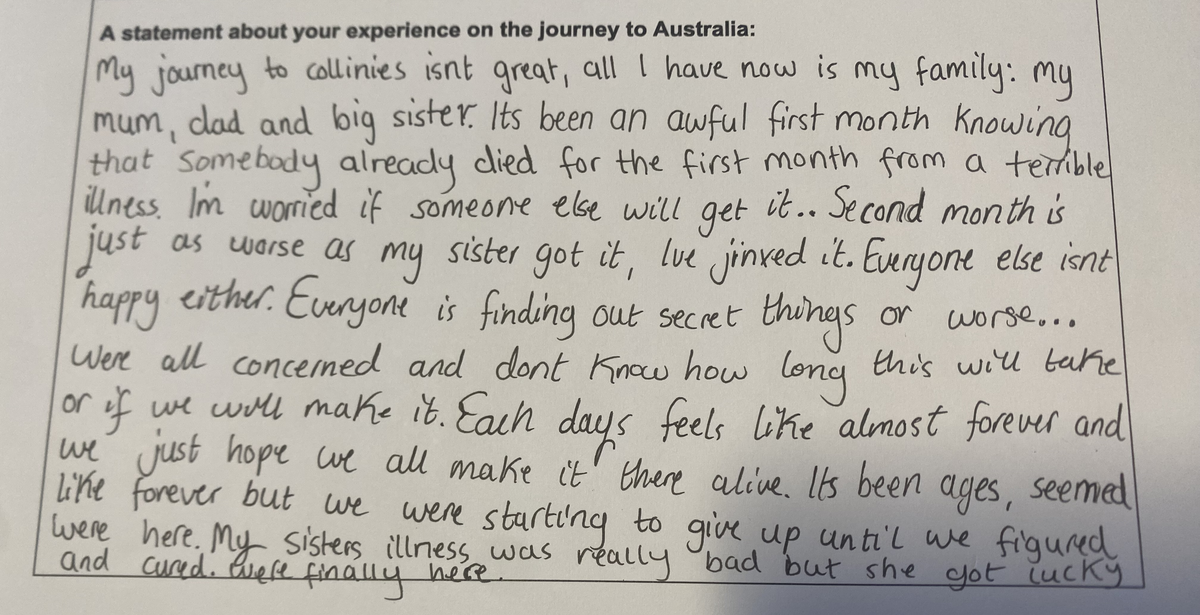 A statement about your experience on the journey to Australia:
My journey to collinies isnt great, all I have now is my family: my
mum, dad and big sister. Its been an awful first month knowing
that somebody already died for the first month from a terrible
illness. I'm worried if someone else will get it.. Second month is
just as worse as my sister got it, Ive jinxed it. Everyone else isnt
happy either. Everyone is finding out secret things or worse...
Were all concerned and dont know how long this will take
or if we will make it. Each days feels like almost forever and
we just hope we all make it there alive. Its been ages, seemed
like forever but we were starting to give up until we figured
were here. My sisters illness was really bad but she got lucky
and cured. Were finally here.